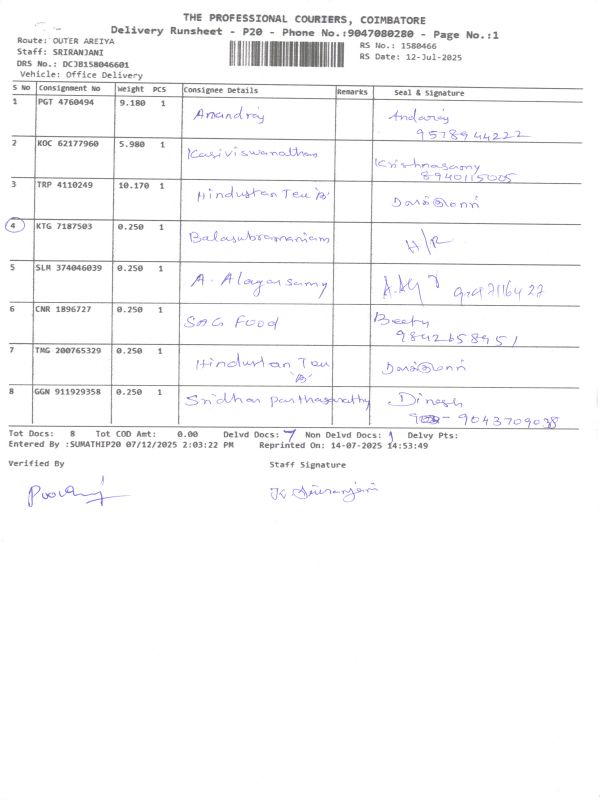 THE PROFESSIONAL COURIERS, COIMBATORE
Delivery Runsheet - P20 - Phone No.:9047080280 - Page No.:1
Route: OUTER AREIYA
Staff: SRIRANJANI
DRS No.: DCJB158046601
Vehicle: Office Delivery
RS No.: 1580466
RS Date: 12-Jul-2025
S No Consignment No Weight PCS Consignee Details Remarks Seal & Signature
1 PGT 4760494 9.180 1 Anandraj
9578944222
2 KOC 62177960 5.980 1 Kasiviswanathan Krishnasamy
8940115005
3 TRP 4110249 10.170 1 Hindustan Tex 'B'
4 KTG 7187503 0.250 1 Balasubramaniam H/R
5 SLM 374046039 0.250 1 A. Alagarsamy
6 CNR 1896727 0.250 1 Food
9842658951
7 TMG 200765329 0.250 1 Hindustan Tex
'B'
8 GGN 911929358 0.250 1 Sridhar parthasarathy Dinesh
9043709038
Tot Docs: 8 Tot COD Amt: 0.00 Delvd Docs: 7 Non Delvd Docs: 1 Delvy Pts:
Entered By :SUMATHIP20 07/12/2025 2:03:22 PM Reprinted On: 14-07-2025 14:53:49
Verified By Staff Signature
K. Sriranjani